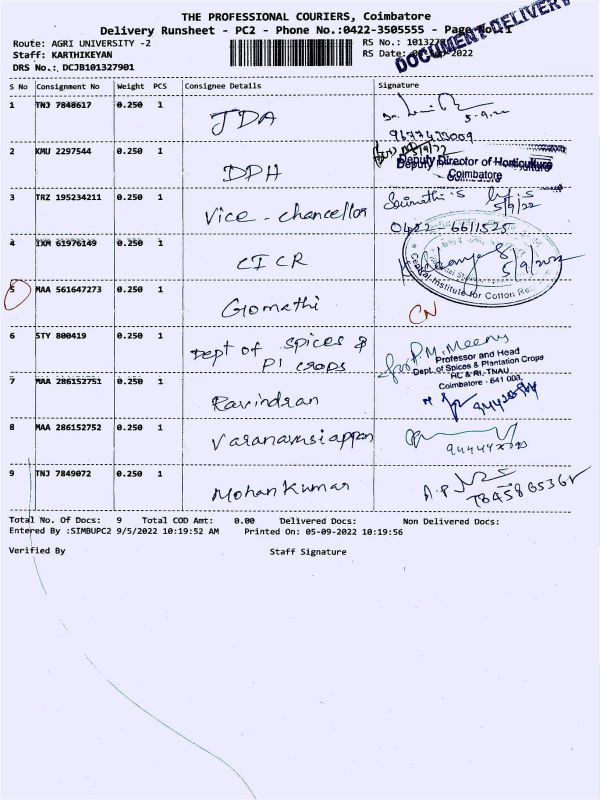 THE PROFESSIONAL COURIERS, Coimbatore
Delivery Runsheet - PC2 - Phone No.:0422-3505555 - Page No.:1
DOCUMENT DELIVERY
Route: AGRI UNIVERSITY -2
RS No.:
Staff: KARTHIKEYAN
RS Date:
DRS No.: DCJB101327901
S No Consignment No Weight PCS Consignee Details Signature
1 TNJ 7848617 0.250 1 JDA
9677433009
2 KMU 2297544 0.250 1 DPH
Deputy Director of Horticulture
Coimbatore
3 TRZ 195234211 0.250 1 Vice - chancellor
5/9/22
0422 - 6611525
4 IXM 61976149 0.250 1 CICR
5/9/2022
Central Institute for Cotton
5 MAA 561647273 0.250 1 Gomathi CN
6 STY 800419 0.250 1 Dept of spices &
Pl crops
for P.M. Meena
Professor and Head
Dept. of Spices & Plantation Crops
HC & RI, TNAU
Coimbatore - 641 003.
7 MAA 286152751 0.250 1 Ravindran
8 MAA 286152752 0.250 1
9 TNJ 7849072 0.250 1 Mohan Kumar
Total No. Of Docs: 9 Total COD Amt: 0.00 Delivered Docs: Non Delivered Docs:
Entered By :SIMBUPC2 9/5/2022 10:19:52 AM Printed On: 05-09-2022 10:19:56
Verified By Staff Signature